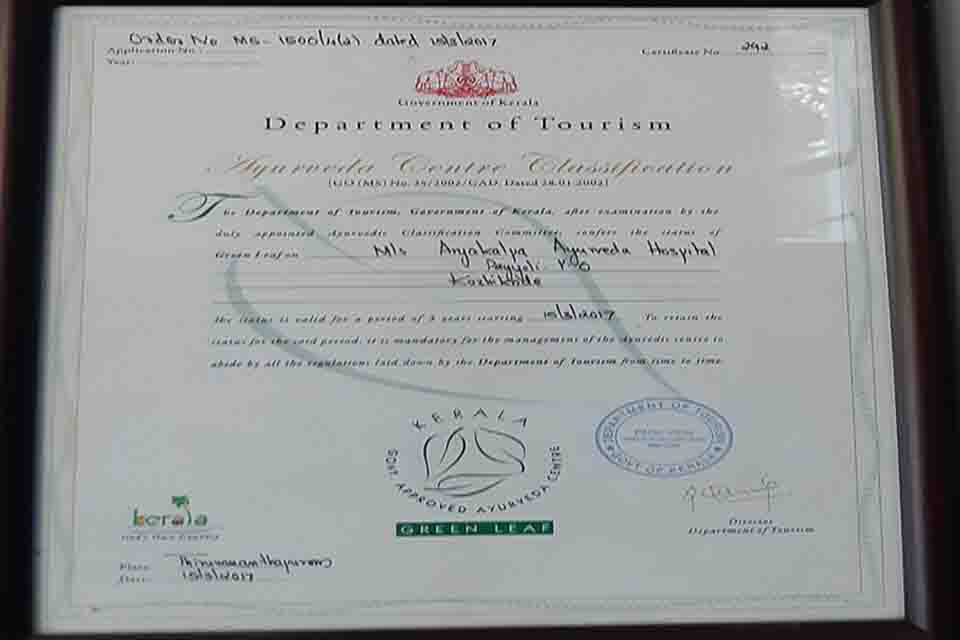 Order No MS- 1500/4(2) dated 15/3/2017
Application No.:
Year:
Certificate No. 292
Government of Kerala
Department of Tourism
Ayurveda Centre Classification
[GO (MS) No. 35/2002/GAD, Dated 28.01.2002]
The Department of Tourism, Government of Kerala, after examination by the
duly appointed Ayurvedic Classification Committee, confers the status of
Green Leaf on M/s Aryakalpa Ayurveda Hospital
Payyoli P.O
Kozhikode
The status is valid for a period of 3 years starting 15/3/2017 To retain the
status for the said period, it is mandatory for the management of the Ayurvedic centre to
abide by all the regulations laid down by the Department of Tourism from time to time.
KERALA
GOVT. APPROVED AYURVEDA CENTRE
GREEN LEAF
DEPARTMENT OF TOURISM
GOVT OF KERALA
kerala
God's Own Country
Director
Department of Tourism
Place: Thiruvananthapuram
Date: 15/3/2017